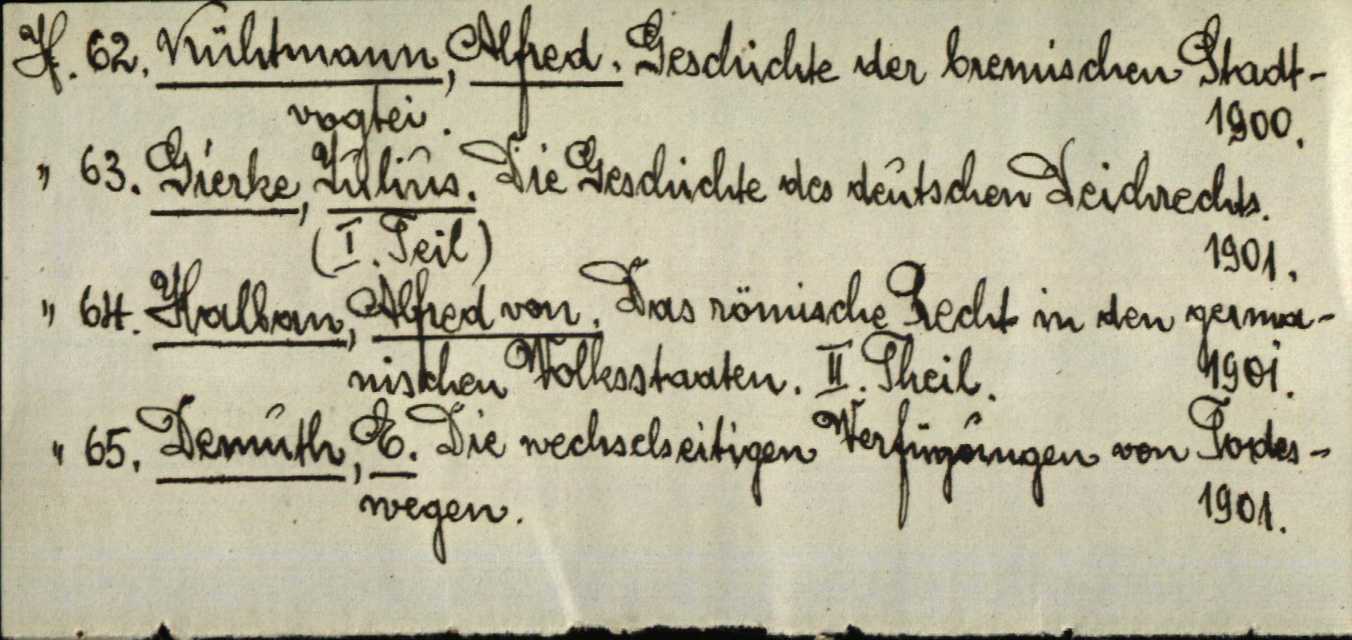 H. 62. Kühtmann, Alfred. Geschichte der bremischen Stadt-
vogtei. 1900.
" 63. Gierke, Julius. Die Geschichte des deutschen Deichrechts.
(I. Teil) 1901.
" 64. Halban, Alfred von. Das römische Recht in den germa-
nischen Volksstaaten. II. Theil. 1901.
" 65. Demuth, E. Die wechselseitigen Verfügungen von Todes-
wegen. 1901.